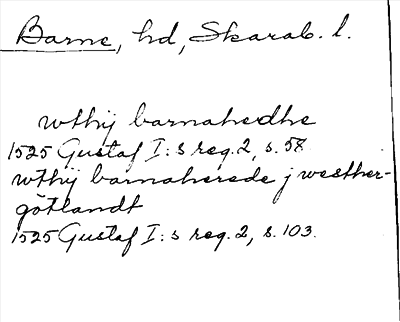 Barne, hd, Skarab. l.
wthij barnahedhe
1525 Gustaf I:s reg. 2, s. 58
wthij barnaherede j westher-
götlandt
1525 Gustaf I:s reg. 2, s. 103.